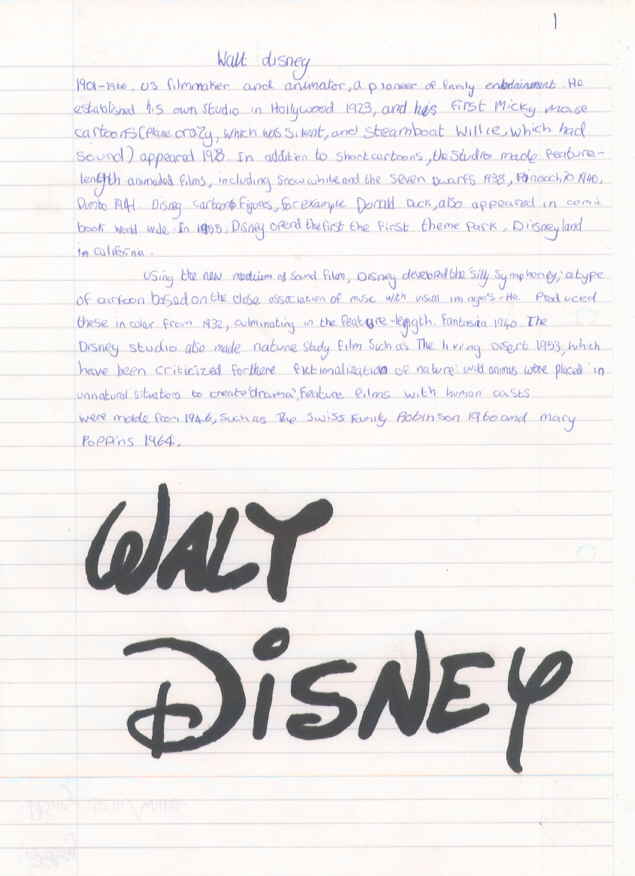 1
Walt disney
1901-1966. US filmmaker and animator, a pioneer of family entertainment. He
established his own studio in Hollywood 1923, and his first Micky mouse
cartoons (plane crazy, which was silent, and Steamboat Willie, which had
sound) appeared 1928. In addition to short cartoons, the studios made feature-
length animated films, including Snow white and the seven dwarfs 1938, 1940,
1941. Disney cartoon figures, for example Donald Duck, also appeared in comic
book world wide. In 1955, Disney opend the first the first theme Park, Disneyland
in california.
Using the new medium of sound film, Disney developed the 'Silly Symphony', a type
of cartoon based on the close association of music with visual images. He Produced
these in color from 1932, culminating in the feature-length. Fantasia 1940. The
Disney studio also made nature study film such as The living desert 1953, which
have been criticized for there fictionalization of nature: wild animls were placed in
unnatural situations to create 'drama', feature films with human casts
were made from 1946, such as The Swiss family Robinson 1960 and mary
Poppins 1964.
WALY
DiSNEY